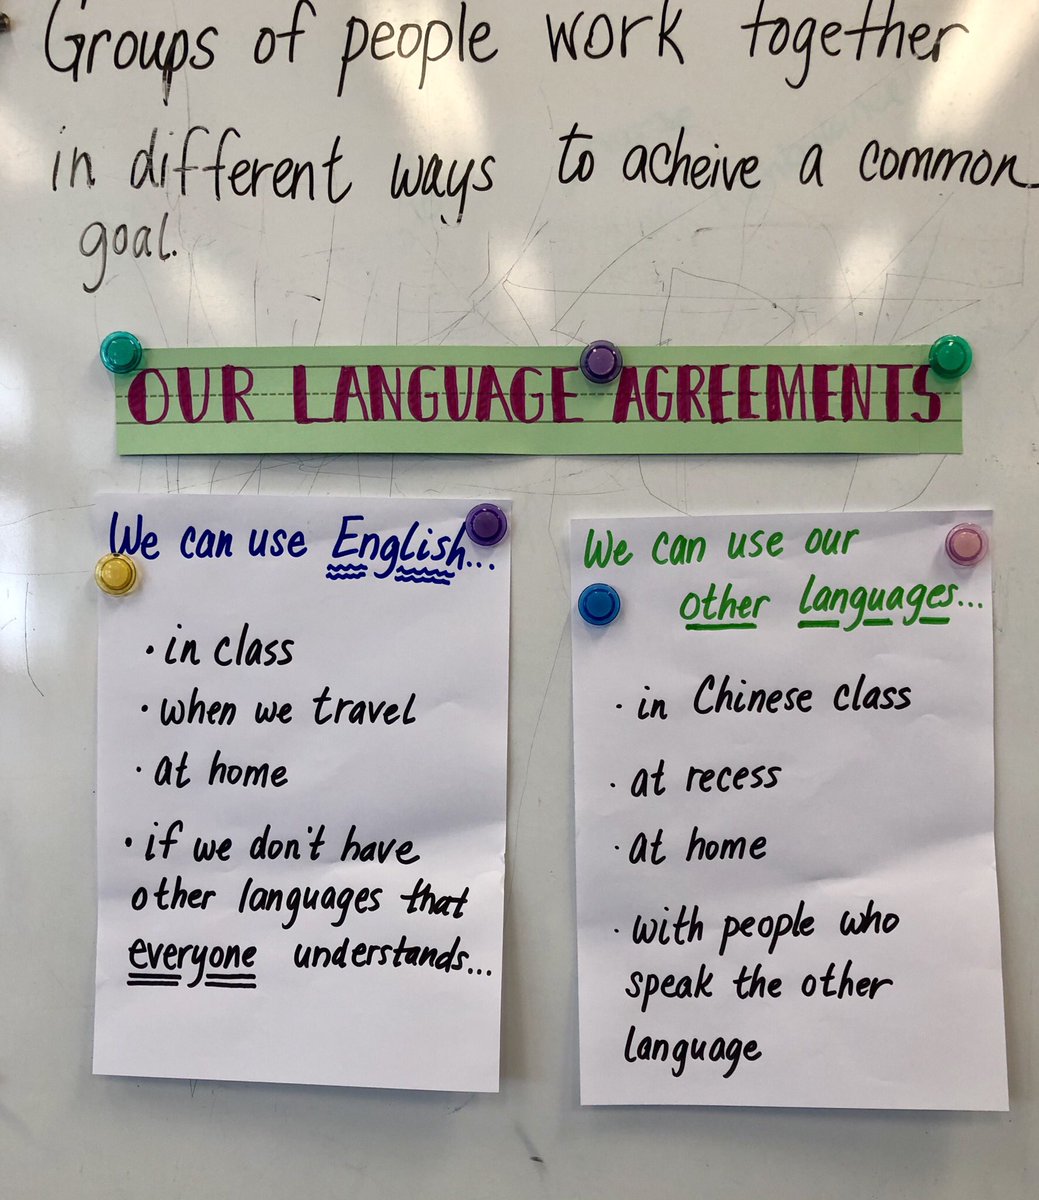 Groups of people work together
in different ways to acheive a common
goal.
OUR LANGUAGE AGREEMENTS
We can use English...
· in class
· when we travel
· at home
· if we don't have
other languages that
everyone understands...
We can use our
other languages...
· in Chinese class
· at recess
· at home
· with people who
speak the other
language